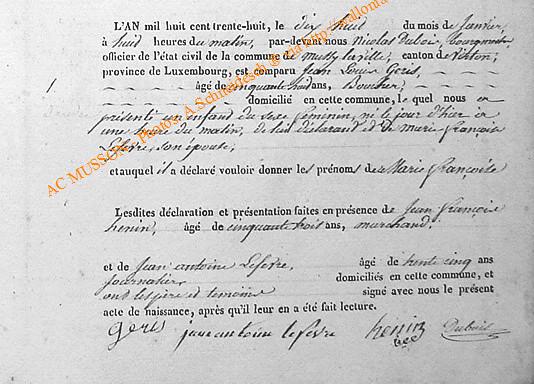 L'AN mil huit cent trente-huit, le dix huit du mois de Janvier,
à huit heures du matin, par-devant nous Nicolas Dubois, bourgmestre
officier de l'état civil de la commune de mussy la ville, canton de Virton,
province de Luxembourg, est comparu Jean Louis Goris,
1. âgé de cinquante huit ans, Boucher,
domicilié en cette commune, lequel nous a
présenté un enfant du sexe féminin, né le jour d'hier à
une heure du matin, de lui déclarant et de marie françoise
Lefevre, son épouse,
et auquel il a déclaré vouloir donner les prénoms de Marie françoise
Lesdites déclaration et présentation faites en présence de Jean françois
henin, âgé de cinquante trois ans, marchand,
et de Jean antoine Lefevre, âgé de trente cinq ans
journalier domiciliés en cette commune, et
ont les père et temoins signé avec nous le présent
acte de naissance, après qu'il leur en a été fait lecture.
goris jean antoine lefevre henin Dubois
AC MUSSON - Photos: A.Schmitz